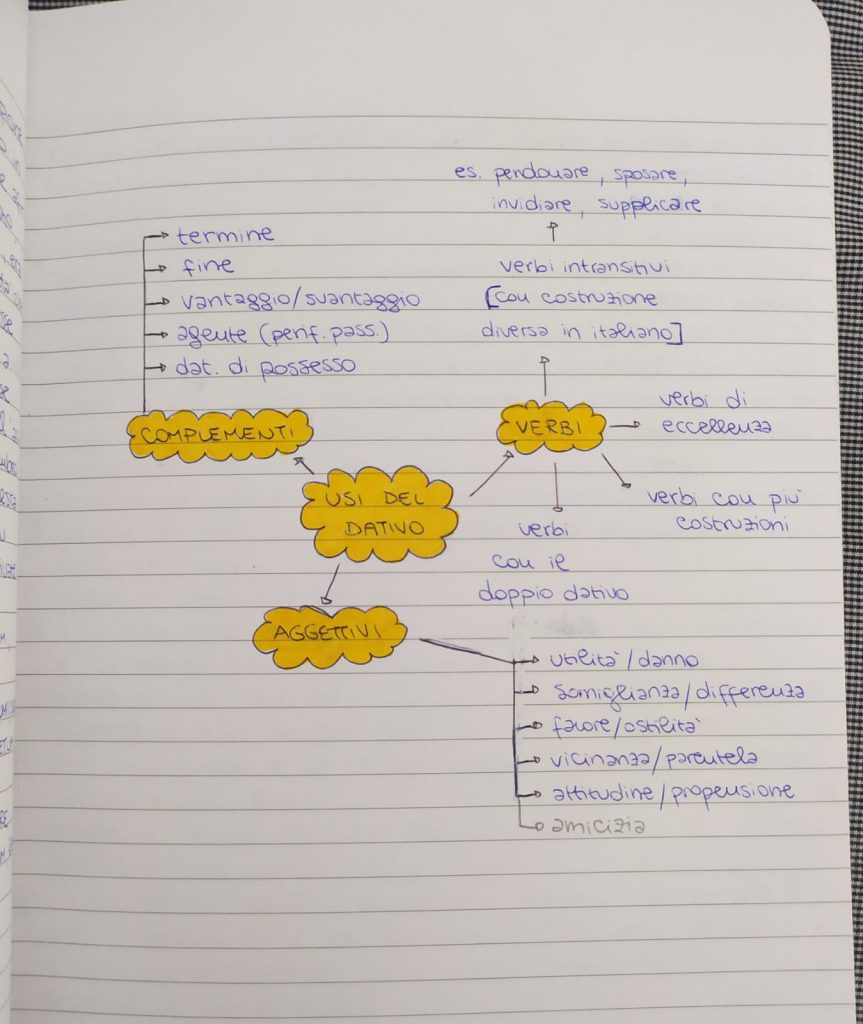 es. perdonare, sposare,
invidiare, supplicare
termine
fine
vantaggio/svantaggio
agente (perif. pass.)
dat. di possesso
verbi intransitivi
[con costruzione
diversa in italiano]
COMPLEMENTI
VERBI
verbi di
eccellenza
verbi con più
costruzioni
USI DEL
DATIVO
verbi
con il
doppio dativo
AGGETTIVI
utilità/danno
somiglianza/differenza
favore/ostilità
vicinanza/parentela
attitudine/propensione
amicizia